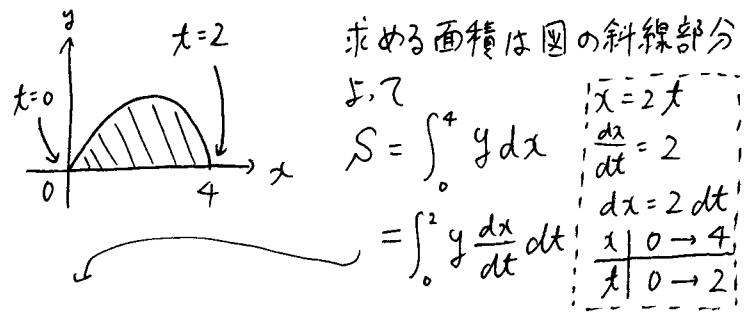 y
t=2
t=0
0
4
x
求める面積は図の斜線部分
よって
S = ∫₀⁴ y dx
= ∫₀² y dx/dt dt
x = 2t
dx/dt = 2
dx = 2 dt
x | 0 → 4
t | 0 → 2